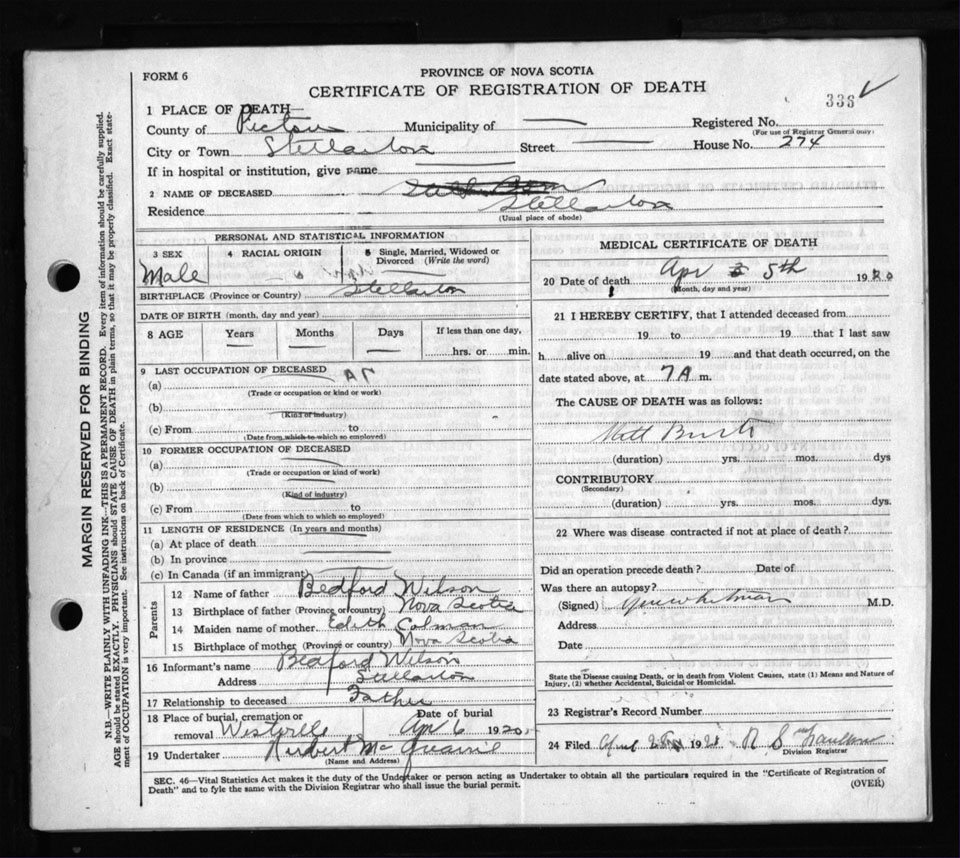 FORM 6
PROVINCE OF NOVA SCOTIA
CERTIFICATE OF REGISTRATION OF DEATH
336
1 PLACE OF DEATH—
County of Pictou Municipality of — Registered No.
(For use of Registrar General only)
City or Town Stellarton Street — House No. 274
If in hospital or institution, give name
2 NAME OF DECEASED
Residence Stellarton
(Usual place of abode)
PERSONAL AND STATISTICAL INFORMATION
3 SEX 4 RACIAL ORIGIN 5 Single, Married, Widowed or Divorced (Write the word)
Male
BIRTHPLACE (Province or Country) Stellarton
DATE OF BIRTH (month, day and year)
8 AGE Years Months Days If less than one day,
— — — hrs. or min.
9 LAST OCCUPATION OF DECEASED
(a)
(Trade or occupation or kind or work)
(b)
(Kind of industry)
(c) From to
(Date from which to which so employed)
10 FORMER OCCUPATION OF DECEASED
(a)
(Trade or occupation or kind of work)
(b)
(Kind of industry)
(c) From to
(Date from which to which so employed)
11 LENGTH OF RESIDENCE (In years and months)
(a) At place of death
(b) In province
(c) In Canada (if an immigrant)
Parents
12 Name of father Bedford Wilson
13 Birthplace of father (Province or country) Nova Scotia
14 Maiden name of mother Edith Colman
15 Birthplace of mother (Province or country) Nova Scotia
16 Informant's name Bedford Wilson
Address Stellarton
17 Relationship to deceased Father
18 Place of burial, cremation or removal Date of burial
Apr 6 1920
19 Undertaker Herbert
(Name and Address)
MEDICAL CERTIFICATE OF DEATH
20 Date of death Apr 5th 1920
(Month, day and year)
21 I HEREBY CERTIFY, that I attended deceased from
19 to 19 that I last saw
h alive on 19 and that death occurred, on the
date stated above, at 7 A m.
The CAUSE OF DEATH was as follows:
(duration) yrs. mos. dys
CONTRIBUTORY
(Secondary)
(duration) yrs. mos. dys.
22 Where was disease contracted if not at place of death?
Did an operation precede death? Date of
Was there an autopsy?
(Signed) M.D.
Address
Date
State the Disease causing Death, or in death from Violent Causes, state (1) Means and Nature of
Injury, (2) whether Accidental, Suicidal or Homicidal.
23 Registrar's Record Number
24 Filed 19
Division Registrar
SEC. 46—Vital Statistics Act makes it the duty of the Undertaker or person acting as Undertaker to obtain all the particulars required in the "Certificate of Registration of
Death" and to fyle the same with the Division Registrar who shall issue the burial permit.
(OVER)
MARGIN RESERVED FOR BINDING
N.B.—WRITE PLAINLY WITH UNFADING INK—THIS IS A PERMANENT RECORD. Every item of information should be carefully supplied.
AGE should be stated EXACTLY. PHYSICIANS should STATE CAUSE OF DEATH in plain terms, so that it may be properly classified. Exact statement of OCCUPATION is very important. See instructions on back of Certificate.